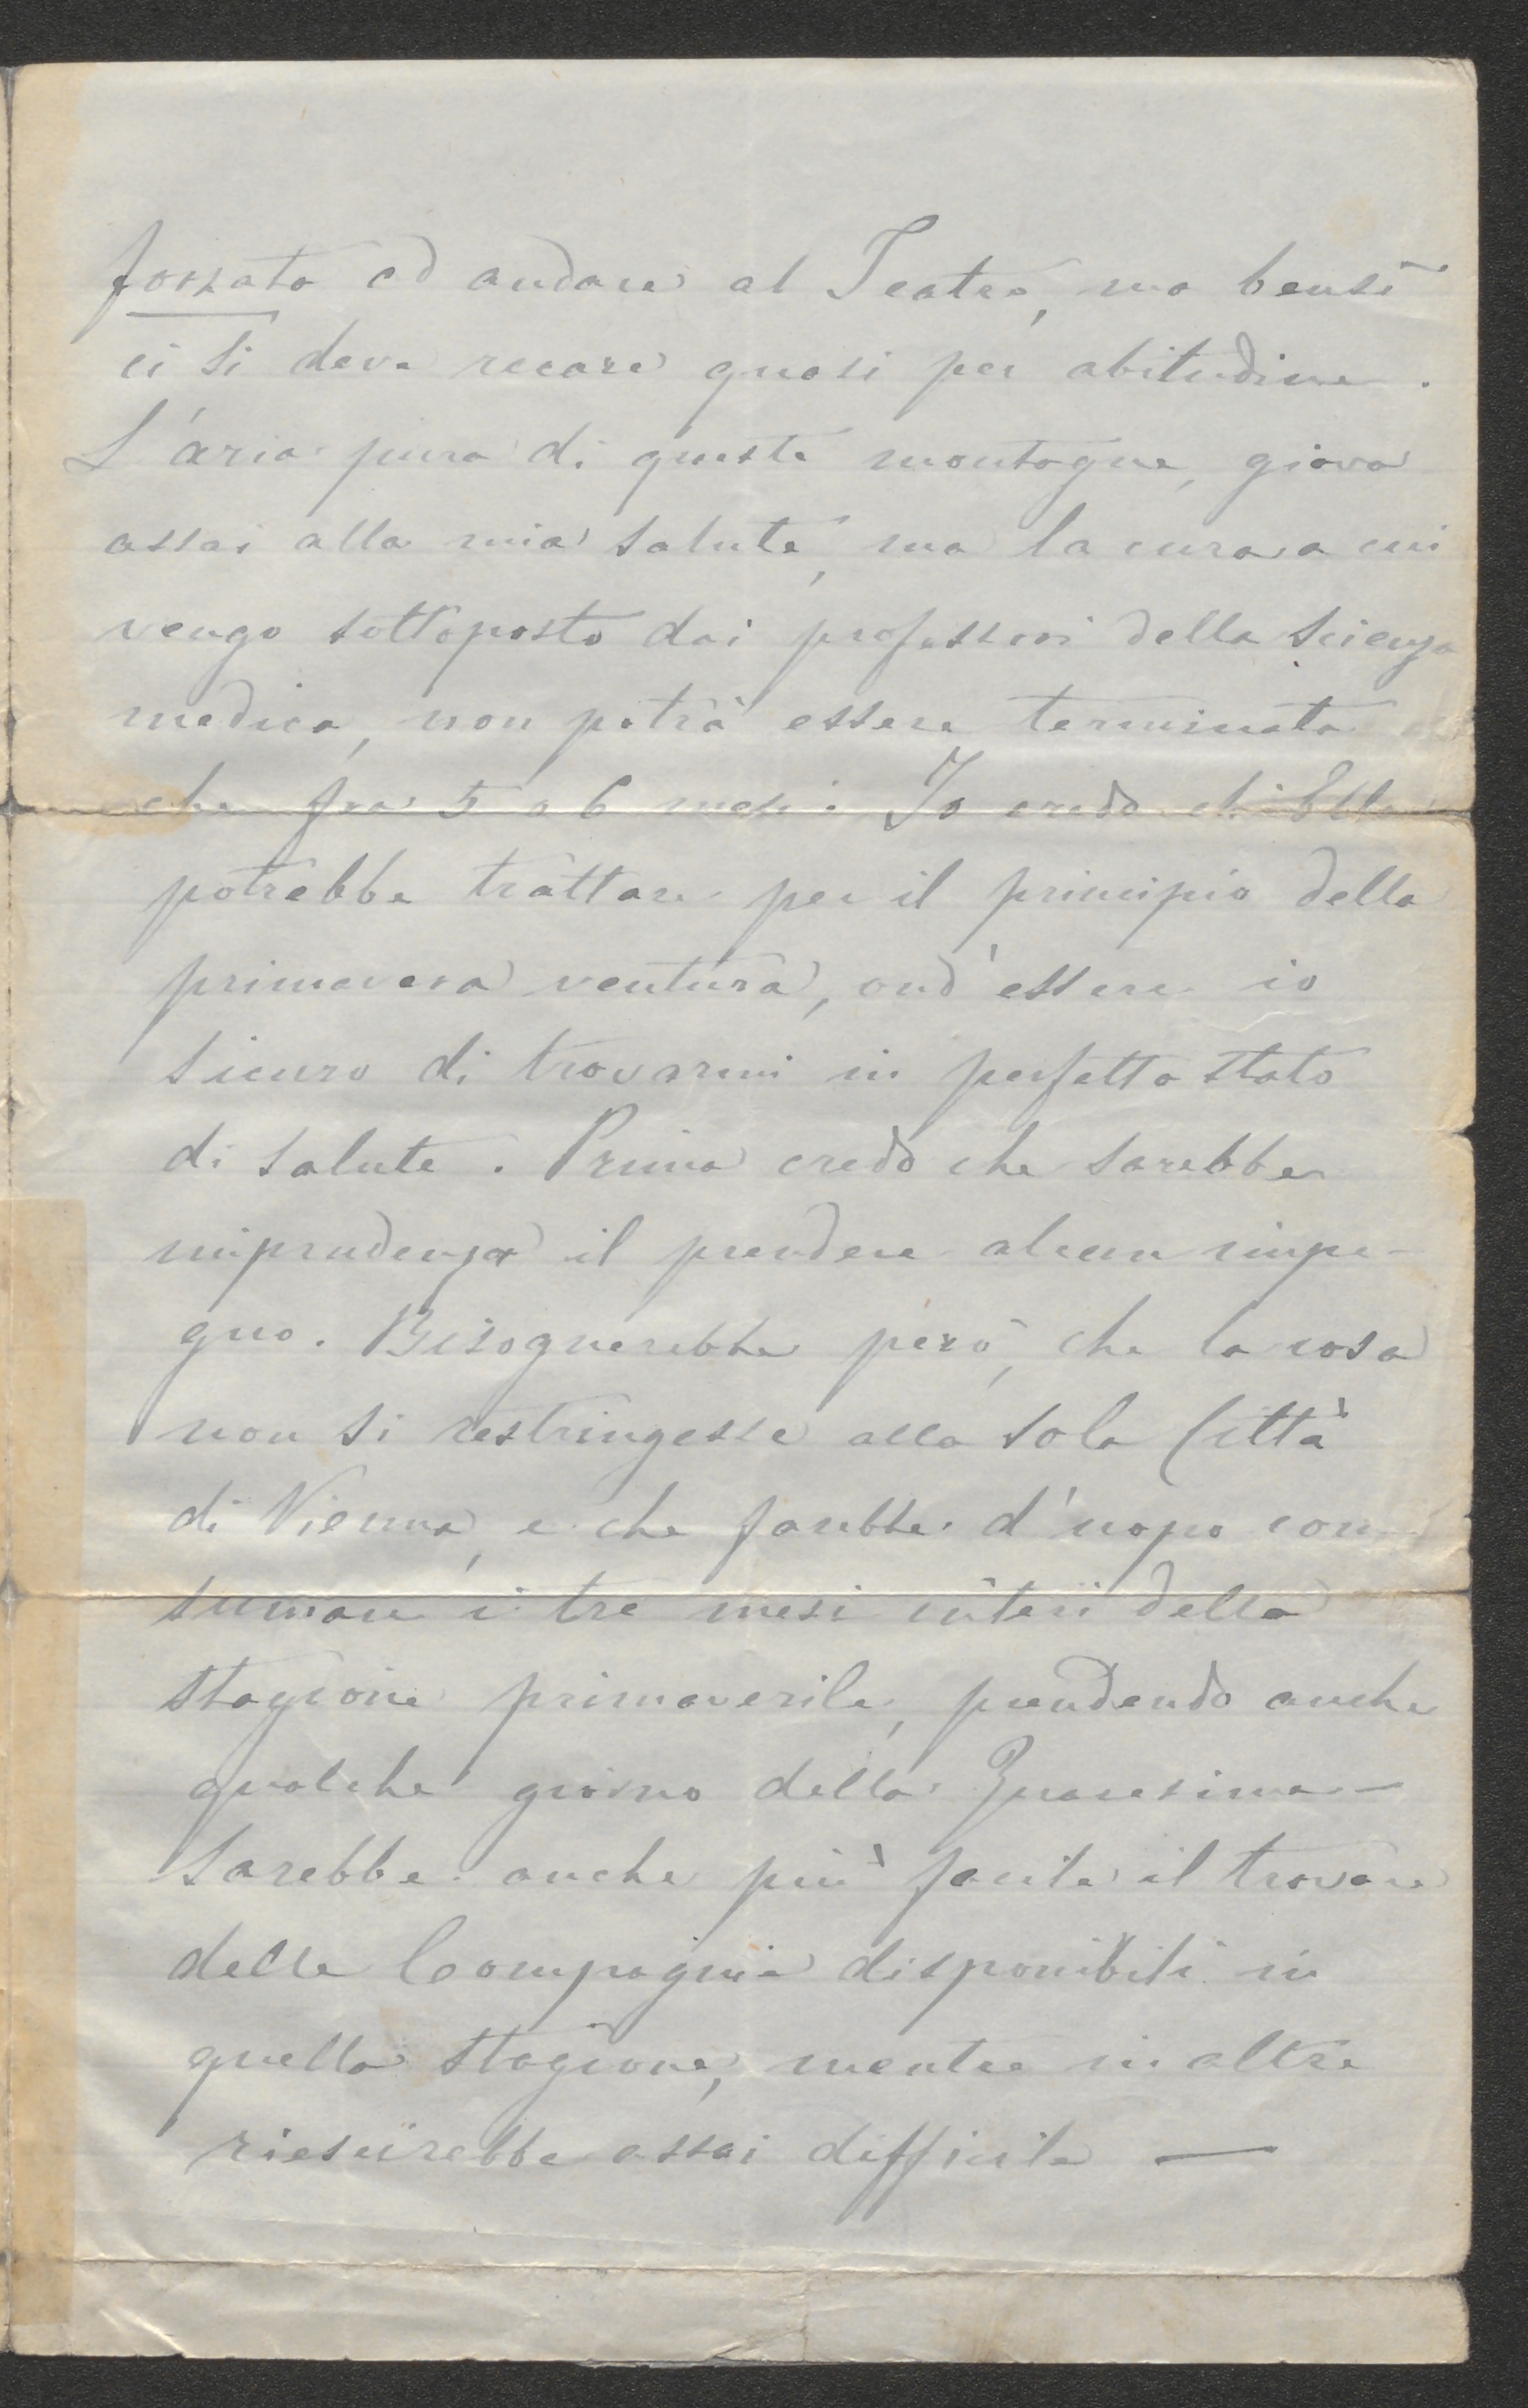 forzato ad andare al Teatro, ma bensì
ci si deve recare quasi per abitudine.
L'aria pura di queste montagne, giova
assai alla mia salute, ma la cura a cui
vengo sottoposto dai professori della scienza
medica, non potrà essere terminata
che fra 5 o 6 mesi. Io credo ch'Ella
potrebbe trattare per il principio della
primavera ventura, ond'essere io
sicuro di trovarmi in perfetto stato
di salute. Prima credo che sarebbe
imprudenza il prendere alcun impe-
gno. Bisognerebbe però, che la cosa
non si restringesse alla sola Città
di Vienna, e che farebbe d'uopo con-
sumare i tre mesi interi della
stagione primaverile, prendendo anche
qualche giorno della Quaresima —
Sarebbe anche più facile il trovare
delle Compagnie disponibili in
quella stagione, mentre in altre
riescirebbe assai difficile —